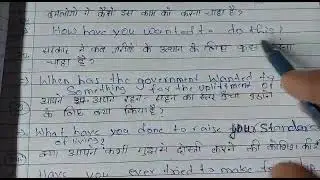 तुमलोगों ने कैसे इस काम को करना चाहा है?
How have you wanted to do this?
सरकार ने कब गरीबों के उत्थान के लिए कुछ
चाहा है?
When has the government wanted to
something for the upliftment of
आपने अपने रहन-सहन का स्तर ऊंचा उठाने
के लिए क्या किया है?
What have you done to raise your standard
of living?
क्या आपने कभी मुझसे दोस्ती करने की कोशिश की है
Have you ever tried to make